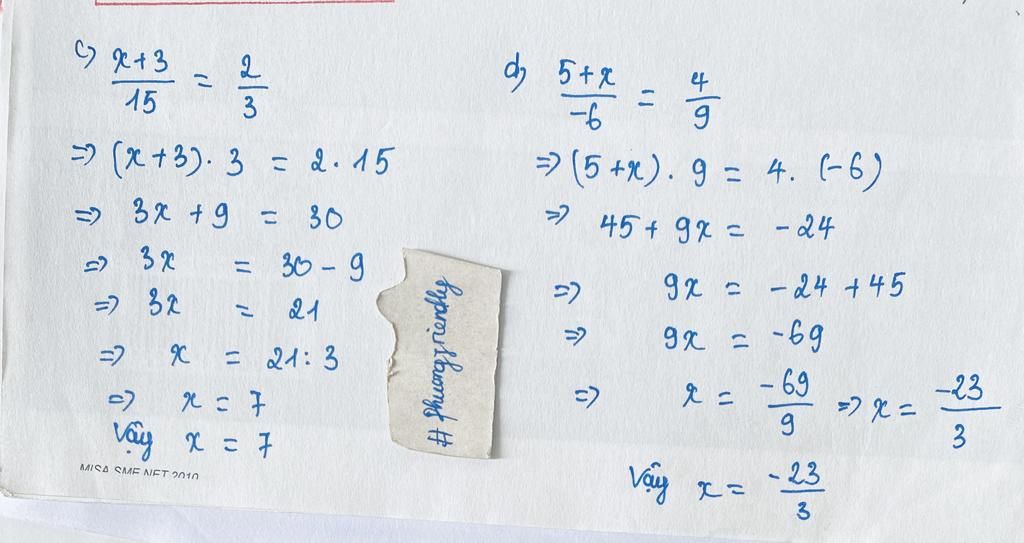 c) x+3/15 = 2/3
=> (x+3). 3 = 2. 15
=> 3x + 9 = 30
=> 3x = 30 - 9
=> 3x = 21
=> x = 21: 3
=> x = 7
Vậy x = 7
MISA SME.NET 2010
# phuongfriendly
d) 5+x/-6 = 4/9
=> (5+x). 9 = 4. (-6)
=> 45 + 9x = -24
=> 9x = -24 + 45
=> 9x = -69
=> x = -69/9 => x = -23/3
Vậy x = -23/3